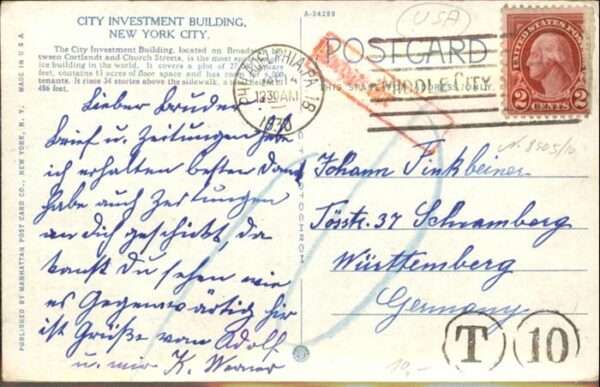 CITY INVESTMENT BUILDING,
NEW YORK CITY.
The City Investment Building, located on Broadway be-
tween Cortlandt and Church Streets, is the most
ice building in the world. It covers a plot of square
feet, contains 13 acres of floor space and has room
tenants. It rises 34 stories above the sidewalk, a total height
486 feet.
MADE IN U.S.A.
PUBLISHED BY MANHATTAN POST CARD CO., NEW YORK, N. Y.
A-34289
USA
POSTCARD
THIS SPACE FOR ADDRESS ONLY
PHILADELPHIA, PA. 18
1230 AM
1930
UNITED STATES POSTAGE
2 CENTS 2
Lieber Bruder
Brief u. Zeitungen habe
ich erhalten besten Dank
habe auch Zeitungen
an dich geschickt, da
kanst Du sehen wie
es Gegenwärtig hir
ist Grüße vom Adolf
u. mir K. Werner
Johann Finkbeiner
Tösstr. 37 Schramberg
Württemberg
Germany
T
10
10,-